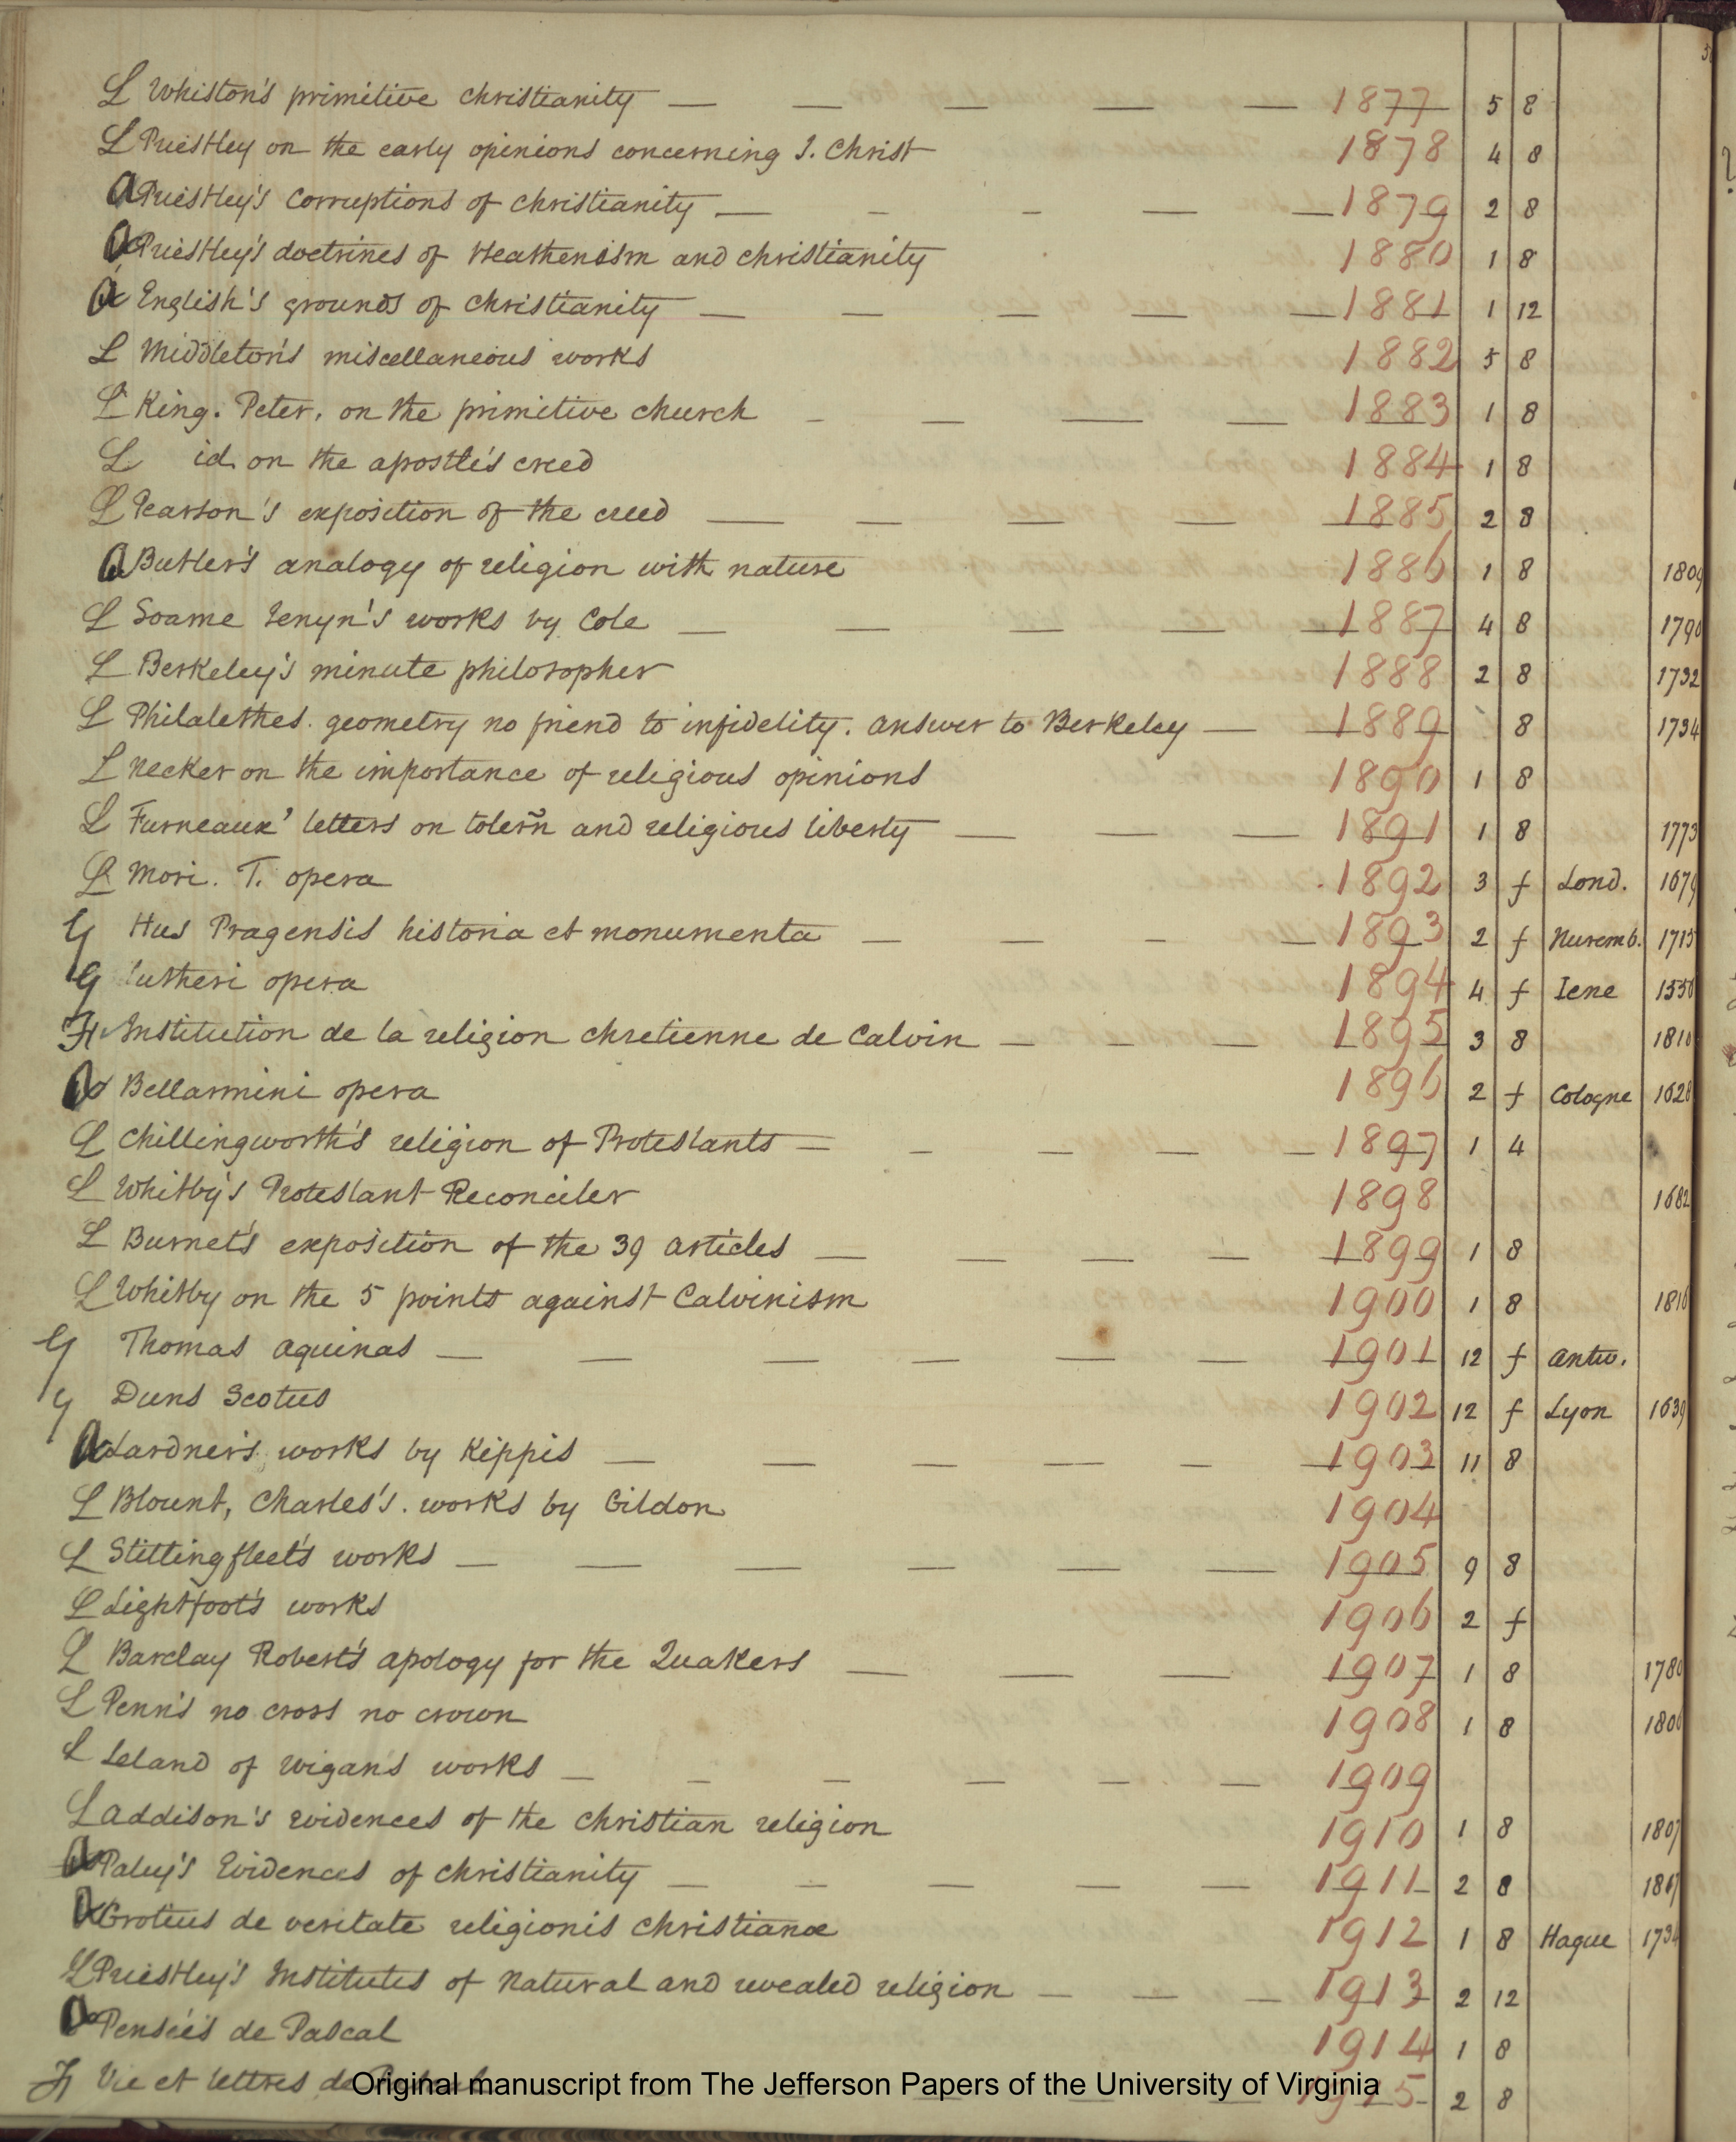 L Whiston's primitive christianity — — — — — 1877 5 8
L Priestley on the early opinions concerning J. Christ 1878 4 8
a Priestley's Corruptions of christianity — — — — — 1879 2 8
a Priestley's doctrines of Heathenism and christianity 1880 1 8
a English's grounds of christianity — — — — — 1881 1 12
L Middleton's miscellaneous works 1882 5 8
L King. Peter, on the primitive church — — — — 1883 1 8
L id. on the apostle's creed 1884 1 8
L Pearson's exposition of the creed — — — — — 1885 2 8
a Butler's analogy of religion with nature 1886 1 8 1809
L Soame Jenyn's works by Cole — — — — — 1887 4 8 1790
L Berkeley's minute philosopher 1888 2 8 1732
L Philalethes. geometry no friend to infidelity. answer to Berkeley — — 1889 8 1734
L Necker on the importance of religious opinions 1890 1 8
L Furneaux' letters on tolern̄ and religious liberty — — — 1891 1 8 1773
L Mori. T. opera 1892 3 f Lond. 1679
G Hus Pragensis historia et monumenta — — — — 1893 2 f Nuremb. 1715
G Lutheri opera 1894 4 f Iene
Fr Institution de la religion chretienne de Calvin — — — 1895 3 8
a Bellarmini opera 1896 2 f Cologne 1628
L Chillingworth's religion of Protestants — — — — — 1897 1 4
L Whitby's Protestant Reconciler 1898 1682
L Burnet's exposition of the 39 articles — — — — 1899 1 8
L Whitby on the 5 points against Calvinism 1900 1 8 1816
G Thomas Aquinas — — — — — — 1901 12 f Antw.
G Duns Scotus 1902 12 f Lyon 1639
a Lardner's works by Kippis — — — — — 1903 11 8
L Blount, Charles's. works by Gildon 1904
L Stillingfleet's works — — — — — — 1905 9 8
L Lightfoot's works 1906 2 f
L Barclay Robert's apology for the Quakers — — — 1907 1 8 1780
L Penn's no cross no crown 1908 1 8
L Leland of Wigan's works — — — — — — 1909
L Addison's evidences of the Christian religion 1910 1 8 1807
a Paley's Evidences of christianity — — — — — 1911 2 8
a Grotius de veritate religionis christianae 1912 1 8 Hague
L Priestley's Institutes of Natural and revealed religion — — — 1913 2 12
a Penseés de Pascal 1914 1 8
Fr Vie et lettres de 1915 2 8
Original manuscript from The Jefferson Papers of the University of Virginia